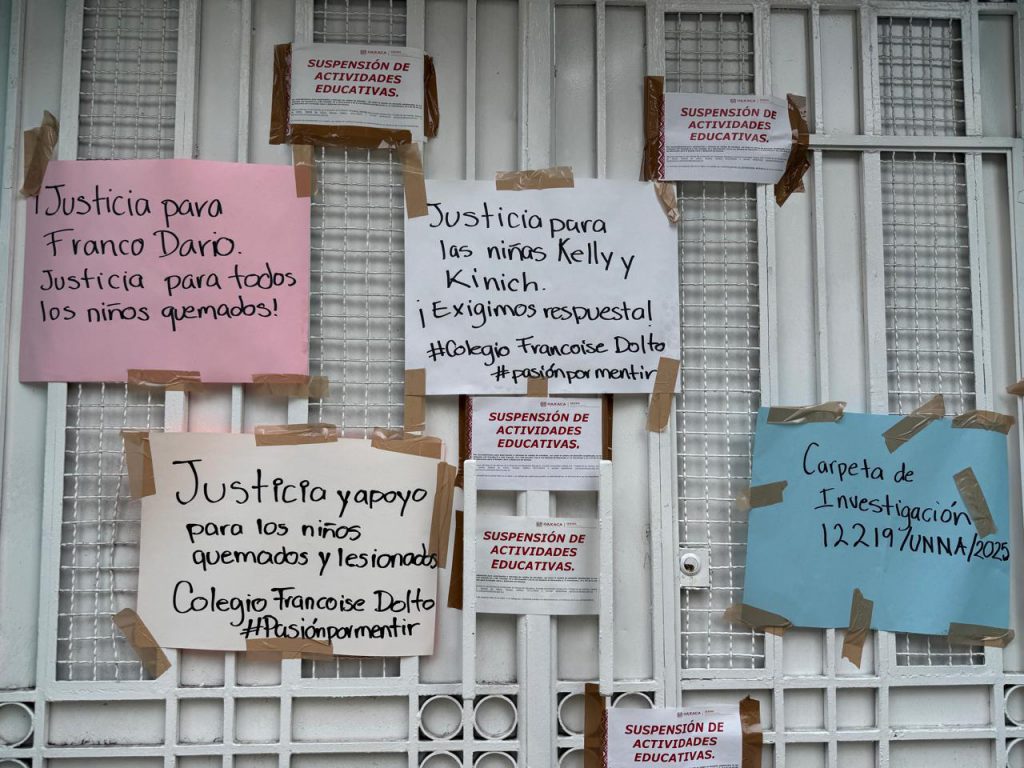 OAXACA
SUSPENSIÓN DE
ACTIVIDADES
EDUCATIVAS.
OAXACA
SUSPENSIÓN DE
ACTIVIDADES
EDUCATIVAS.
¡Justicia para
Franco Dario.
Justicia para todos
los niños quemados!
Justicia para
las niñas Kelly y
Kinich.
¡Exigimos respuesta!
#Colegio Francoise Dolto
#pasiónpormentir
OAXACA
SUSPENSIÓN DE
ACTIVIDADES
EDUCATIVAS.
Justicia y apoyo
para los niños
quemados y lesionados
Colegio Francoise Dolto
#Pasiónpormentir
Carpeta de
Investigación
12219/UNNA/2025
OAXACA
SUSPENSIÓN DE
ACTIVIDADES
EDUCATIVAS.
OAXACA
SUSPENSIÓN DE
ACTIVIDADES
EDUCATIVAS.